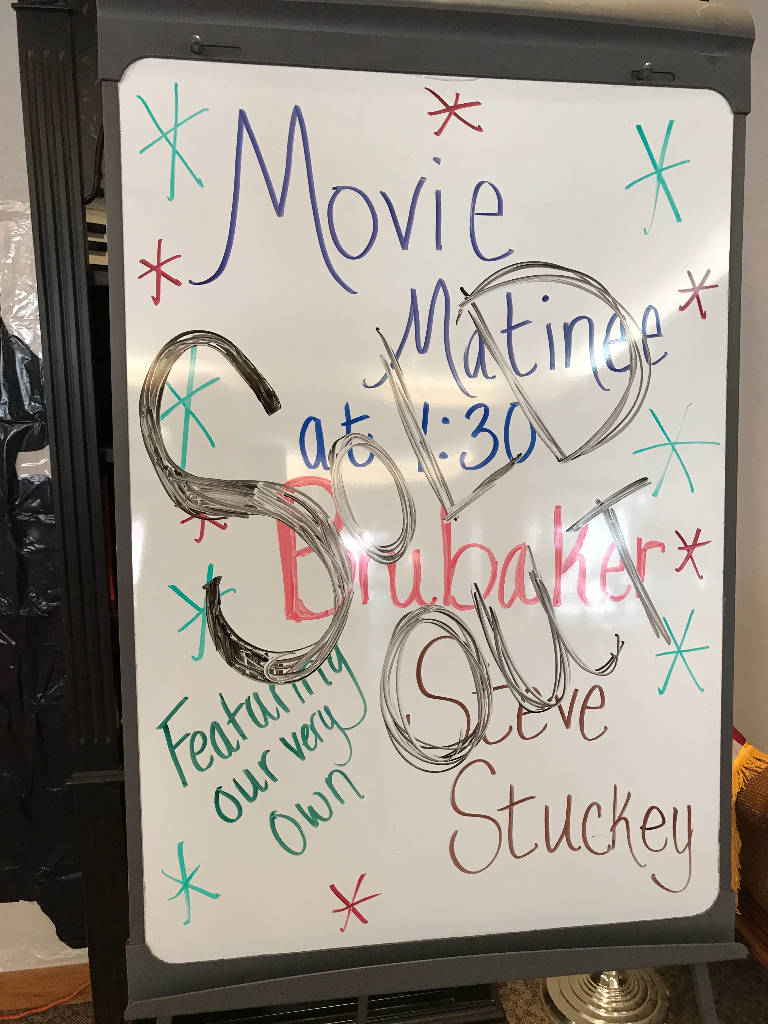 Movie
Matinee
at 1:30
Brubaker
Featuring
our very
own
Steve
Stuckey
SOLD
OUT